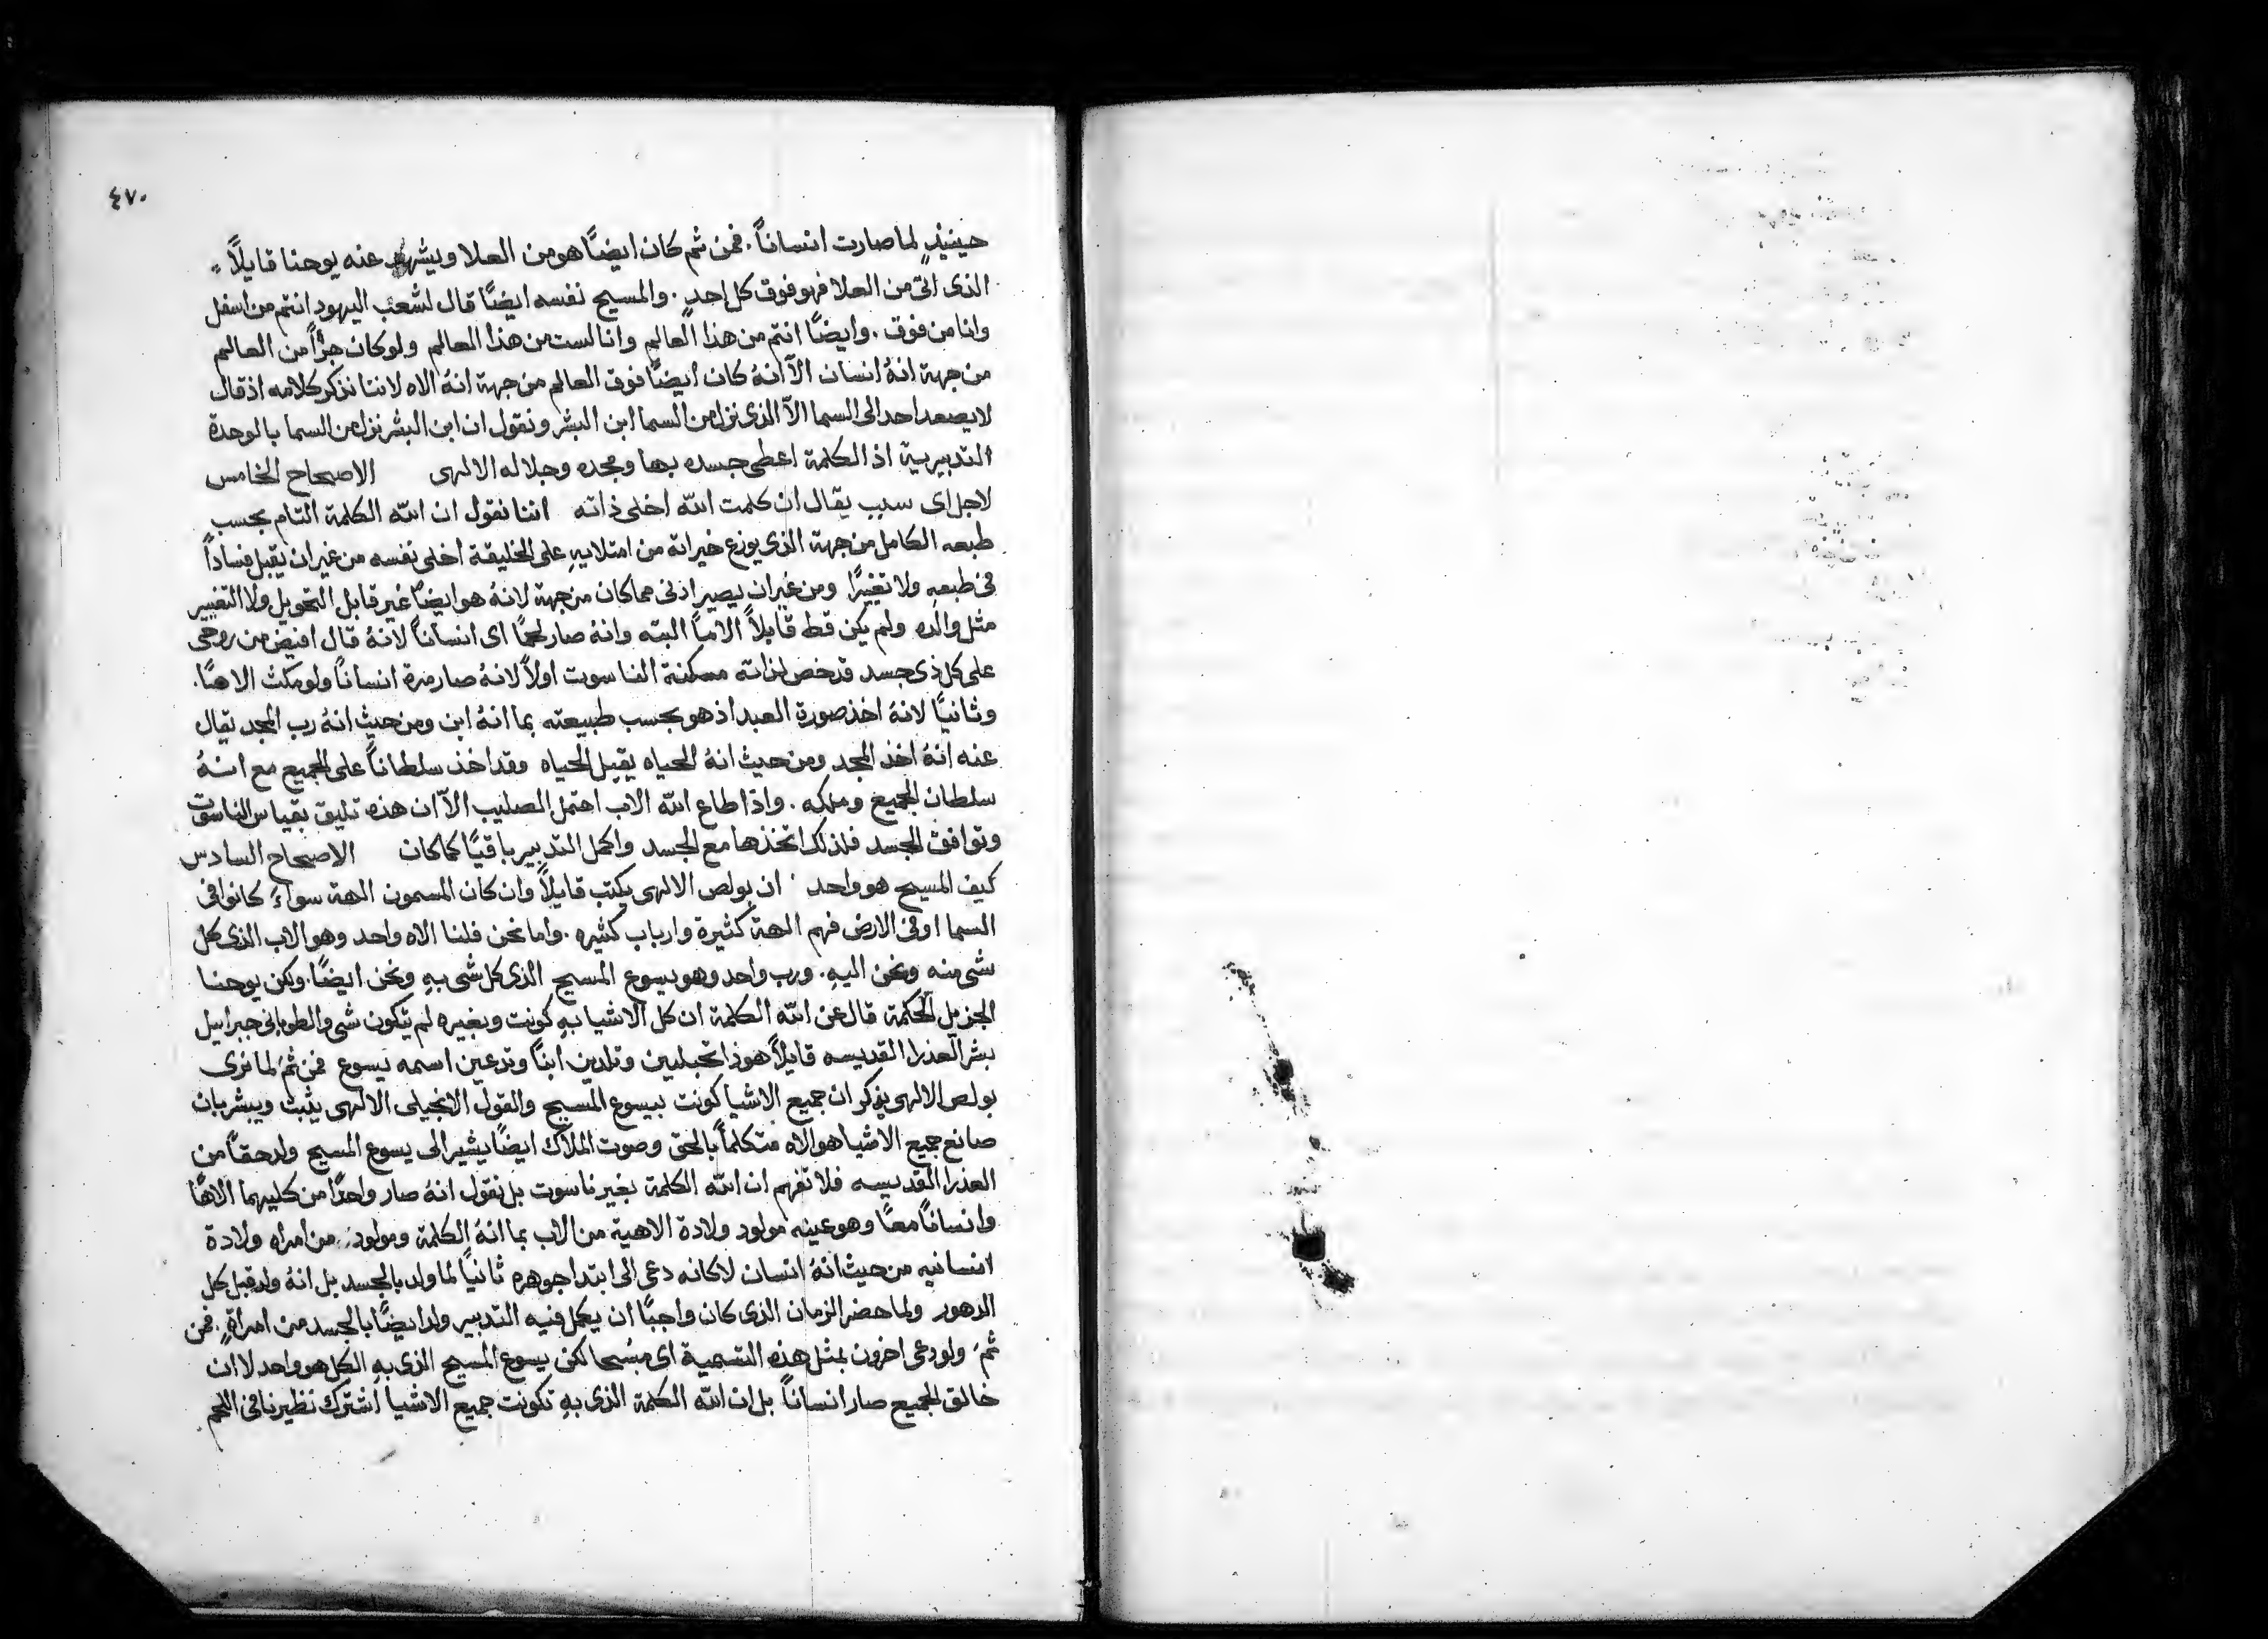 ٤٧٠
حينيذٍ لما صارت انساناً. فمن ثم كان ايضًا هو من العلا ويشهد عنه يوحنا قايلاً
الذى اتى من العلا فهو فوق كل احدٍ. والمسيح نفسه ايضًا قال لشعب اليهود انتم من اسفل
وانا من فوق. وايضًا انتم من هذا العالم وانا لست من هذا العالم ولو كان جزًأ من العالم
من جهة انهُ انسان الاّ انهُ كان ايضًا فوق العالم من جهة انهُ الاه لاننا نذكر كلامه اذ قال
لا يصعد احد الى السما الاّ الذى نزل من السما ابن البشر ونقول ان ابن البشر نزل من السما بالوحدة
التدبيرية اذ الكلمة اعطى جسده بها ومجده وجلاله الالهى الاصحاح الخامس
لاجل اى سبب يقال ان كلمت الله اخلى ذاته اننا نقول ان الله الكلمة التام بحسب
طبعه الكامل من جهة الذى يوزع خيراته من امتلايهِ على الخليقة اخلى نفسه من غير ان يقبل فساداً
فى طبعهِ ولا تغيرًا ومن غير ان يصير ادنى مما كان من جهة لانهُ هو ايضًا غير قابل التحويل ولا التغيير
مثل والده ولم يكن قط قابلاً الاماً البته وانهُ صار لحمًا اى انساناً لانهُ قال افيض من روحى
على كل ذى جسد قد خص لذاته مسكنة الناسوت اولاً لانهُ صار مرة انساناً ولو مكث الاهًا.
وثانيًا لانهُ اخذ صورة العبد اذ هو بحسب طبيعته بما انهُ ابن ومن حيث انهُ رب المجد يقال
عنه انهُ اخذ المجد ومن حيث انهُ الحياه يقبل الحياه وقد اخذ سلطاناً على الجميع مع انهُ
سلطان الجميع وملكه. واذ اطاع الله الاب احتمل الصليب الاّ ان هذه تليق بقياس الناسوت
وتوافق الجسد فلذلك اتخذها مع الجسد واكمل التدبير باقيًا كما كان الاصحاح السادس
كيف المسيح هو واحد ان بولص الالهى يكتب قايلاً وان كان المسمون الهة سواءً كانوا فى
السما او فى الارض فهم الهة كثيرة وارباب كثيره. واما نحن فلنا الاه واحد وهو الاب الذى كل
شى منه ونحن اليهِ. ورب واحد وهو يسوع المسيح الذى كل شى بهِ ونحن ايضًا. ولكن يوحنا
الجزيل الحكمة قال عن الله الكلمة ان كل الاشيا بهِ كونت وبغيره لم يتكون شى والطوبانى جبراييل
بشر العذرا القديسه قايلاً هوذا تحبلين وتلدين ابنًا وتدعين اسمه يسوع فمن ثمَ لما نرى
بولص الالهى يذكر ان جميع الاشيا كونت بيسوع المسيح والقول الانجيلى الالهى يثبث ويبشر بان
صانع جميع الاشيا هو الاه متكلماً بالحق وصوت الملاك ايضًا يشير الى يسوع المسيح ولد حقاً من
العذرا القديسه فلا تفهم ان الله الكلمة بغير ناسوت بل نقول انهُ صار واحدًا من كليهما الاهًا
وانساناً معًا وهو عينه مولود ولادة الاهية من الاب بما انهُ الكلمة ومولود من امراه ولادة
انسانيه من حيث انهُ انسان لا كانه دعى الى ابتدا جوهره ثانيًا لما ولد بالجسد بل انهُ ولد قبل كل
الدهور ولما حضر الزمان الذى كان واجبًا ان يكمل فيه التدبير ولد ايضًا بالجسد من امراةٍ. فمن
ثمَ ولو دعى اخرون بمثل هذه التسمية اى مسُحا لكن يسوع المسيح الذى بهِ الكل هو واحد لا ان
خالق الجميع صار انساناً بل ان الله الكلمة الذى بهِ تكونت جميع الاشيا اشترك نظيرنا فى اللحم